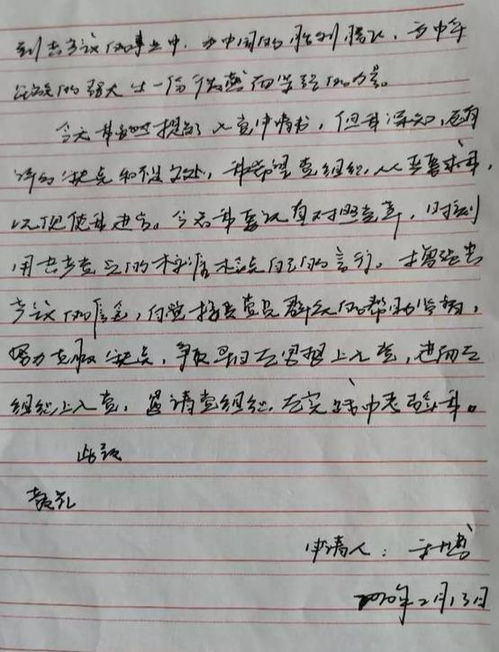 到共产主义的事业中，为中国的胜利腾飞，为中华
民族的强大出一份微薄而坚强的力量。
今天我虽然提出了入党申请书，但我深知，还有
许多缺点和不足之处，我希望党组织，从严要求我，
以便使我进步。今后我要以党员对照党章，时刻
用共产党员的标准检点自己的言行。增强共
产主义的信念，自觉接受党员群众的帮助监督，
努力克服缺点，争取早日在思想上入党，进而在
组织上入党，恳请党组织，在实践中考验我。
此致
敬礼
申请人：
2020年2月13日